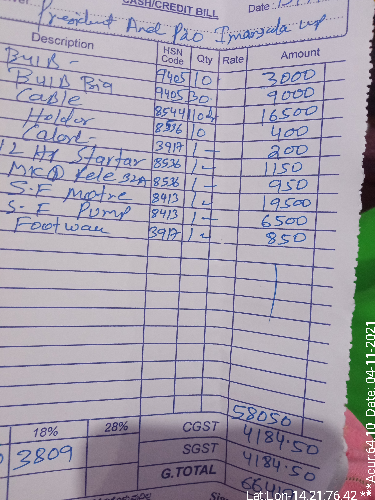 CASH/CREDIT BILL
Date :
President And PRO Imarvada up
Description HSN Code Qty Rate Amount
Bulb - 9405 10 3000
Bulb Big 9405 30 9000
Cable 8544 16500
Holdor 8536 10 400
3917 1 - 200
12 HP Startar 8536 1 - 1150
MK Rele 32A 8536 1 - 950
S.F Motre 8413 1 - 19500
S.F Pump 8413 1 - 6500
Footwau 3917 1 - 850
58050
18% 28% CGST 4184.50
3809 SGST 4184.50
G.TOTAL
Lat Lon-14.21:76.42 ***Acur:64.10 Date:04-11-2021